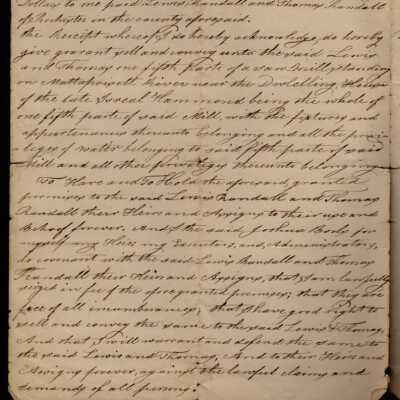 Dollars to me paid Lewis Randall and Thomas Randall
of Rochester in the county aforesaid.
the Receipt whereof I do hereby acknowledge, do hereby
give grant sell and convey unto the said Lewis
and Thomas one fifth parte of a Saw Mill, standing
on Mattapoisett River near the Dwelling House
of the late Isreal Hammond being the whole of
one fifth parte of said Mill, with the fixtures and
appurtenances thereunto belonging and all the privi
leges of water belonging to said fifth parte of said
Mill and all other priveleges thereunto belonging
To Have and To Hold the aforesaid granted
premises to the said Lewis Randall and Thomas
Randall their Heirs and Assigns to their use and
Behoof forever. And I the said Joshua for
myself my Heirs my Executors, and, Administrators,
do covenant with the said Lewis Randall and Thomas
Randall their Heirs and Assigns, that I am lawfully
seized in fee of the afore granted premises; that they are
free of all incumbrances; that I have good right to
sell and convey the same to the said Lewis & Thomas,
And that I will warrant and defend the same to
the said Lewis and Thomas, And to their Heirs and
Assigns forever, against the lawful claims and
demands of all persons.